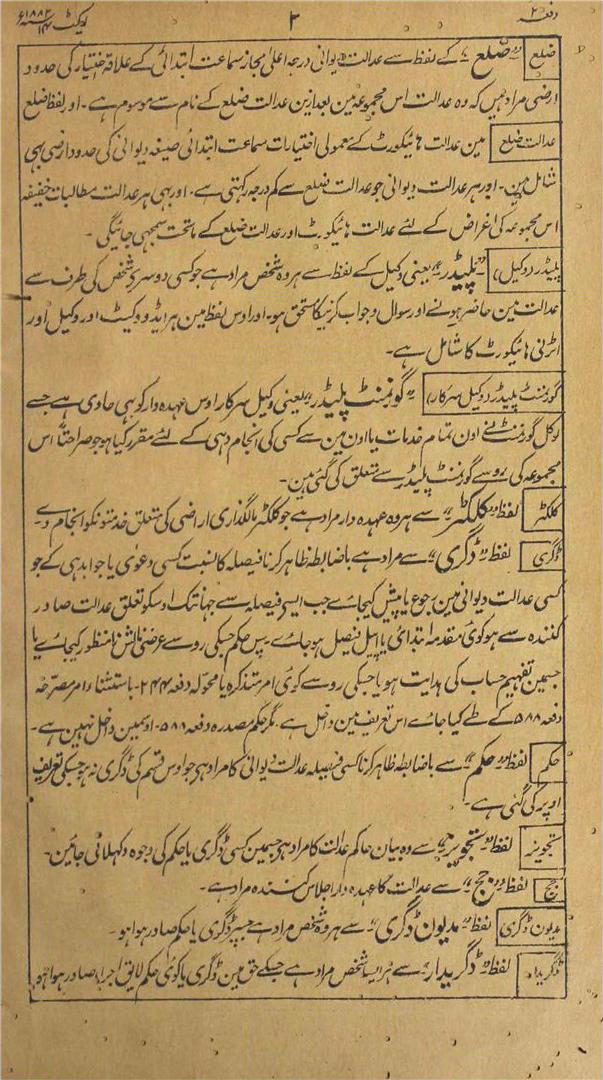 دفعہ ۲
۲
ایکٹ ۱۴ سنہ ۱۸۸۲ء
ضلع
”ضلع“ کے لفظ سے عدالت دیوانی درجہ اعلیٰ مجاز سماعت ابتدائی کے علاقہ اختیار کی حدود
ارضی مراد ہیں کہ وہ عدالت اس مجموعہ مین بعد ازین عدالت ضلع کے نام سے موسوم ہے۔ اور لفظ ضلع
عدالت ضلع
مین عدالت ہائیکورٹ کے معمولی اختیارات سماعت ابتدائی صیغہ دیوانی کی حدود ارضی بہی
شامل ہین۔ اور ہر عدالت دیوانی جو عدالت ضلع سے کم درجہ رکہتی ہے۔ اور بہی ہر عدالت مطالبات خفیفہ
اس مجموعہ کی اغراض کے لئے عدالت ہائیکورٹ اور عدالت ضلع کے ماتحت سمجہی جائیگی۔
پلیڈر (وکیل)
”پلیڈر“ یعنی وکیل کے لفظ سے ہر وہ شخص مراد ہے جو کسی دوسرے شخص کی طرف سے
عدالت مین حاضر ہونے اور سوال و جواب کرنیکا مستحق ہو۔ اور اوس لفظ مین ہر ایڈووکیٹ اور وکیل اور
اٹرنی ہائیکورٹ کا شامل ہے۔
گورنمنٹ پلیڈر (وکیل سرکار)
”گورنمنٹ پلیڈر“ یعنی وکیل سرکار اوس عہدہ دار کو بہی حاوی ہے جسے
لوکل گورنمنٹ نے اون تمام خدمات یا اون مین سے کسی کی انجام دہی کے لئے مقرر کیا ہو جو صراحتاً اس
مجموعہ کی رو سے گورنمنٹ پلیڈر سے متعلق کی گئی ہین۔
کلکٹر
لفظ ”کلکٹر“ سے ہر وہ عہدہ دار مراد ہے جو کلکٹر مالگذاری اراضی کی متعلق خدمتونکو انجام دے۔
ڈگری
لفظ ”ڈگری“ سے مراد ہے باضابطہ ظاہر کرنا فیصلہ کا نسبت کسی دعویٰ یا جوابدہی کے جو
کسی عدالت دیوانی مین رجوع یا پیش کیجائے جب ایسے فیصلہ سے جہانتک اوسکو تعلق عدالت صادر
کنندہ سے ہو کوئی مقدمہ ابتدائی یا اپیل فیصل ہو جائے۔ پس حکم جسکی رو سے عرضی نالش نامنظور کیجائے یا
جسمین تفہیم حساب کی ہدایت ہو یا جسکی رو سے کوئی امر متذکرہ یا محولہ دفعہ ۲۴۴۔ باستثناء امر مصرحہ
دفعہ ۵۸۸ کے طے کیا جائے اس تعریف مین داخل ہے۔ مگر حکم مصدرہ دفعہ ۵۸۸۔ اوسمین داخل نہین ہے۔
حکم
لفظ ”حکم“ سے باضابطہ ظاہر کرنا کسی فیصلہ عدالت دیوانی کا مراد ہی جو اوس قسم کی ڈگری نہ ہو جسکی تعریف
اوپر کی گئی ہے۔
تجویز
لفظ ”تجویز“ سے وہ بیان حاکم عدالت کا مراد ہی جسمین کسی ڈگری یا حکم کی وجوہ دکہلائی جائین۔
جج
لفظ ”جج“ سے عدالت کا عہدہ دار اجلاس کنندہ مراد ہے۔
مدیون ڈگری
لفظ ”مدیون ڈگری“ سے ہر وہ شخص مراد ہے جسپر ڈگری یا حکم صادر ہوا ہو۔
ڈگریدار
لفظ ”ڈگریدار“ سے ہر ایسا شخص مراد ہے جسکے حق مین ڈگری یا کوئی حکم لایق اجرا صادر ہوا ہو